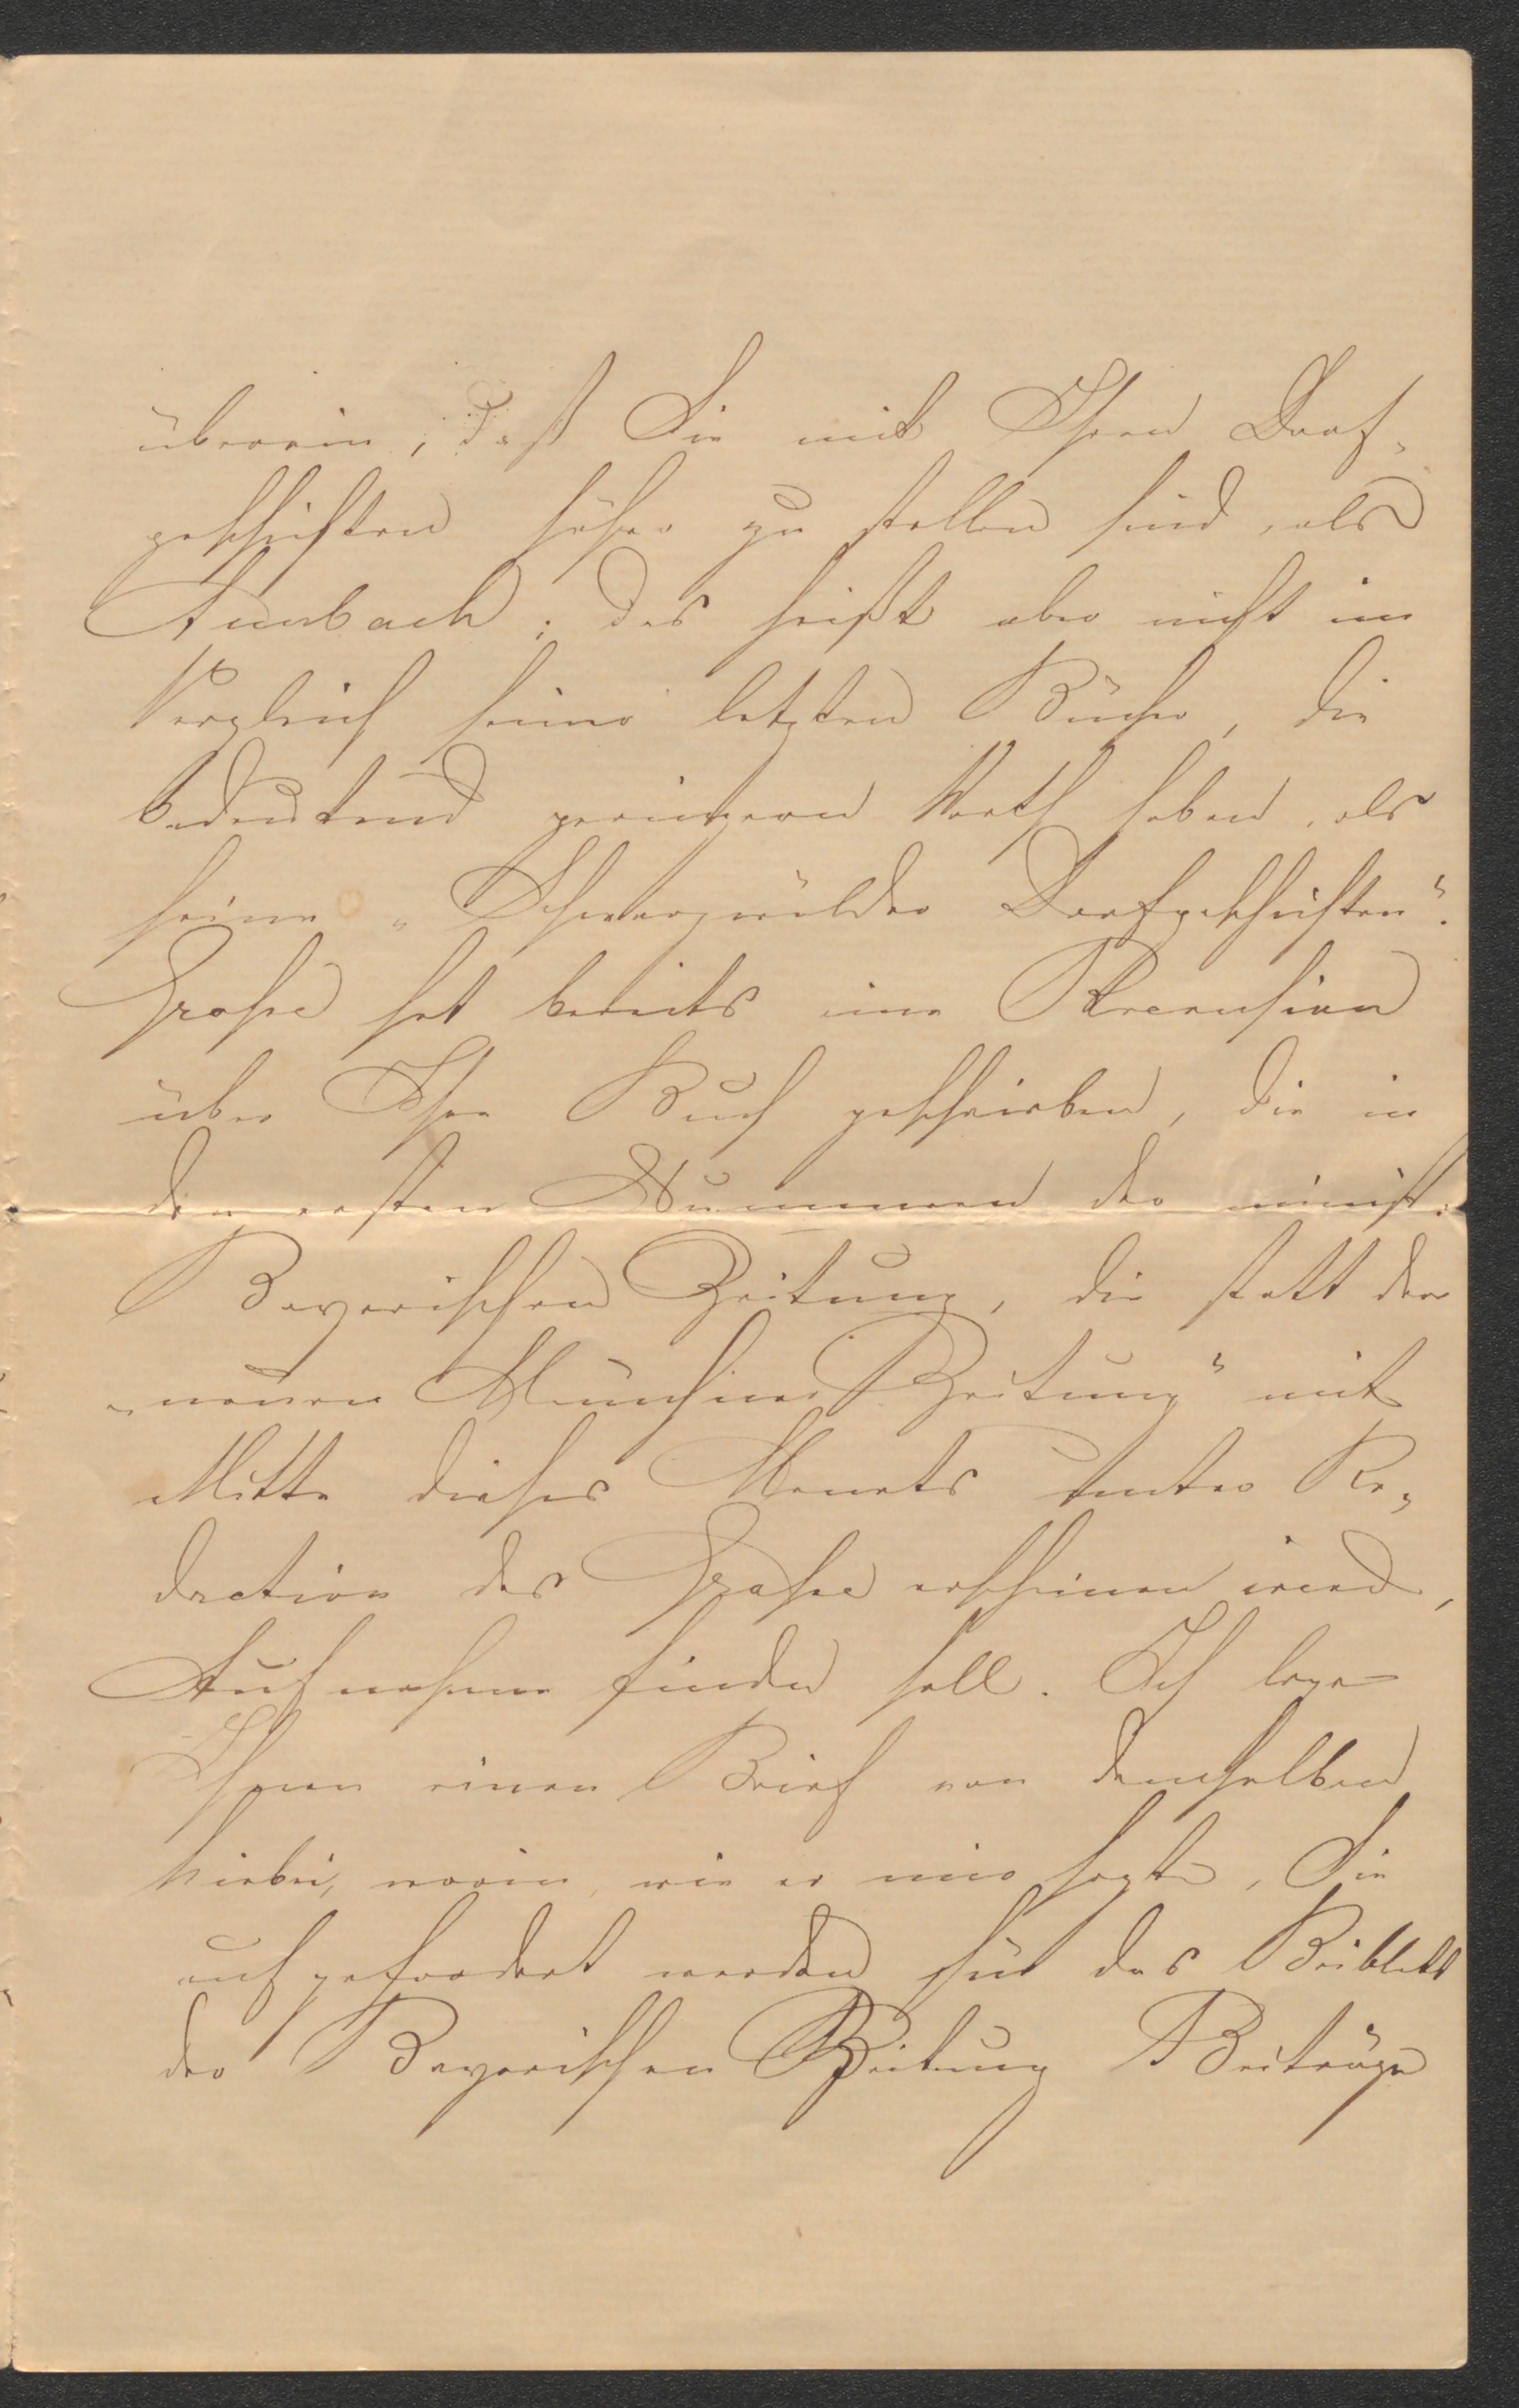 überein, daß Sie mit Ihren Dorf-
geschichten höher zu stellen sind, als
Auerbach; das heißt aber nicht im
Vergleich seiner letzten Bücher, die
bedeutend geringern Werth haben, als
seine „Schwarzwälder Dorfgeschichten".
Große hat bereits eine Recension
über Ihr Buch geschrieben, die in
den ersten Nummern der minist.
Bayerischen Zeitung, die statt der
„neuen Münchner Zeitung" mit
Mitte dieses Monats unter Re-
daction des Große erscheinen wird,
Aufnahme finden soll. Ich lege
Ihnen einen Brief von demselben
hiebei, worin, wie er mir sagte, Sie
aufgefordert werden für das Beiblatt
der Bayerischen Zeitung Beiträge